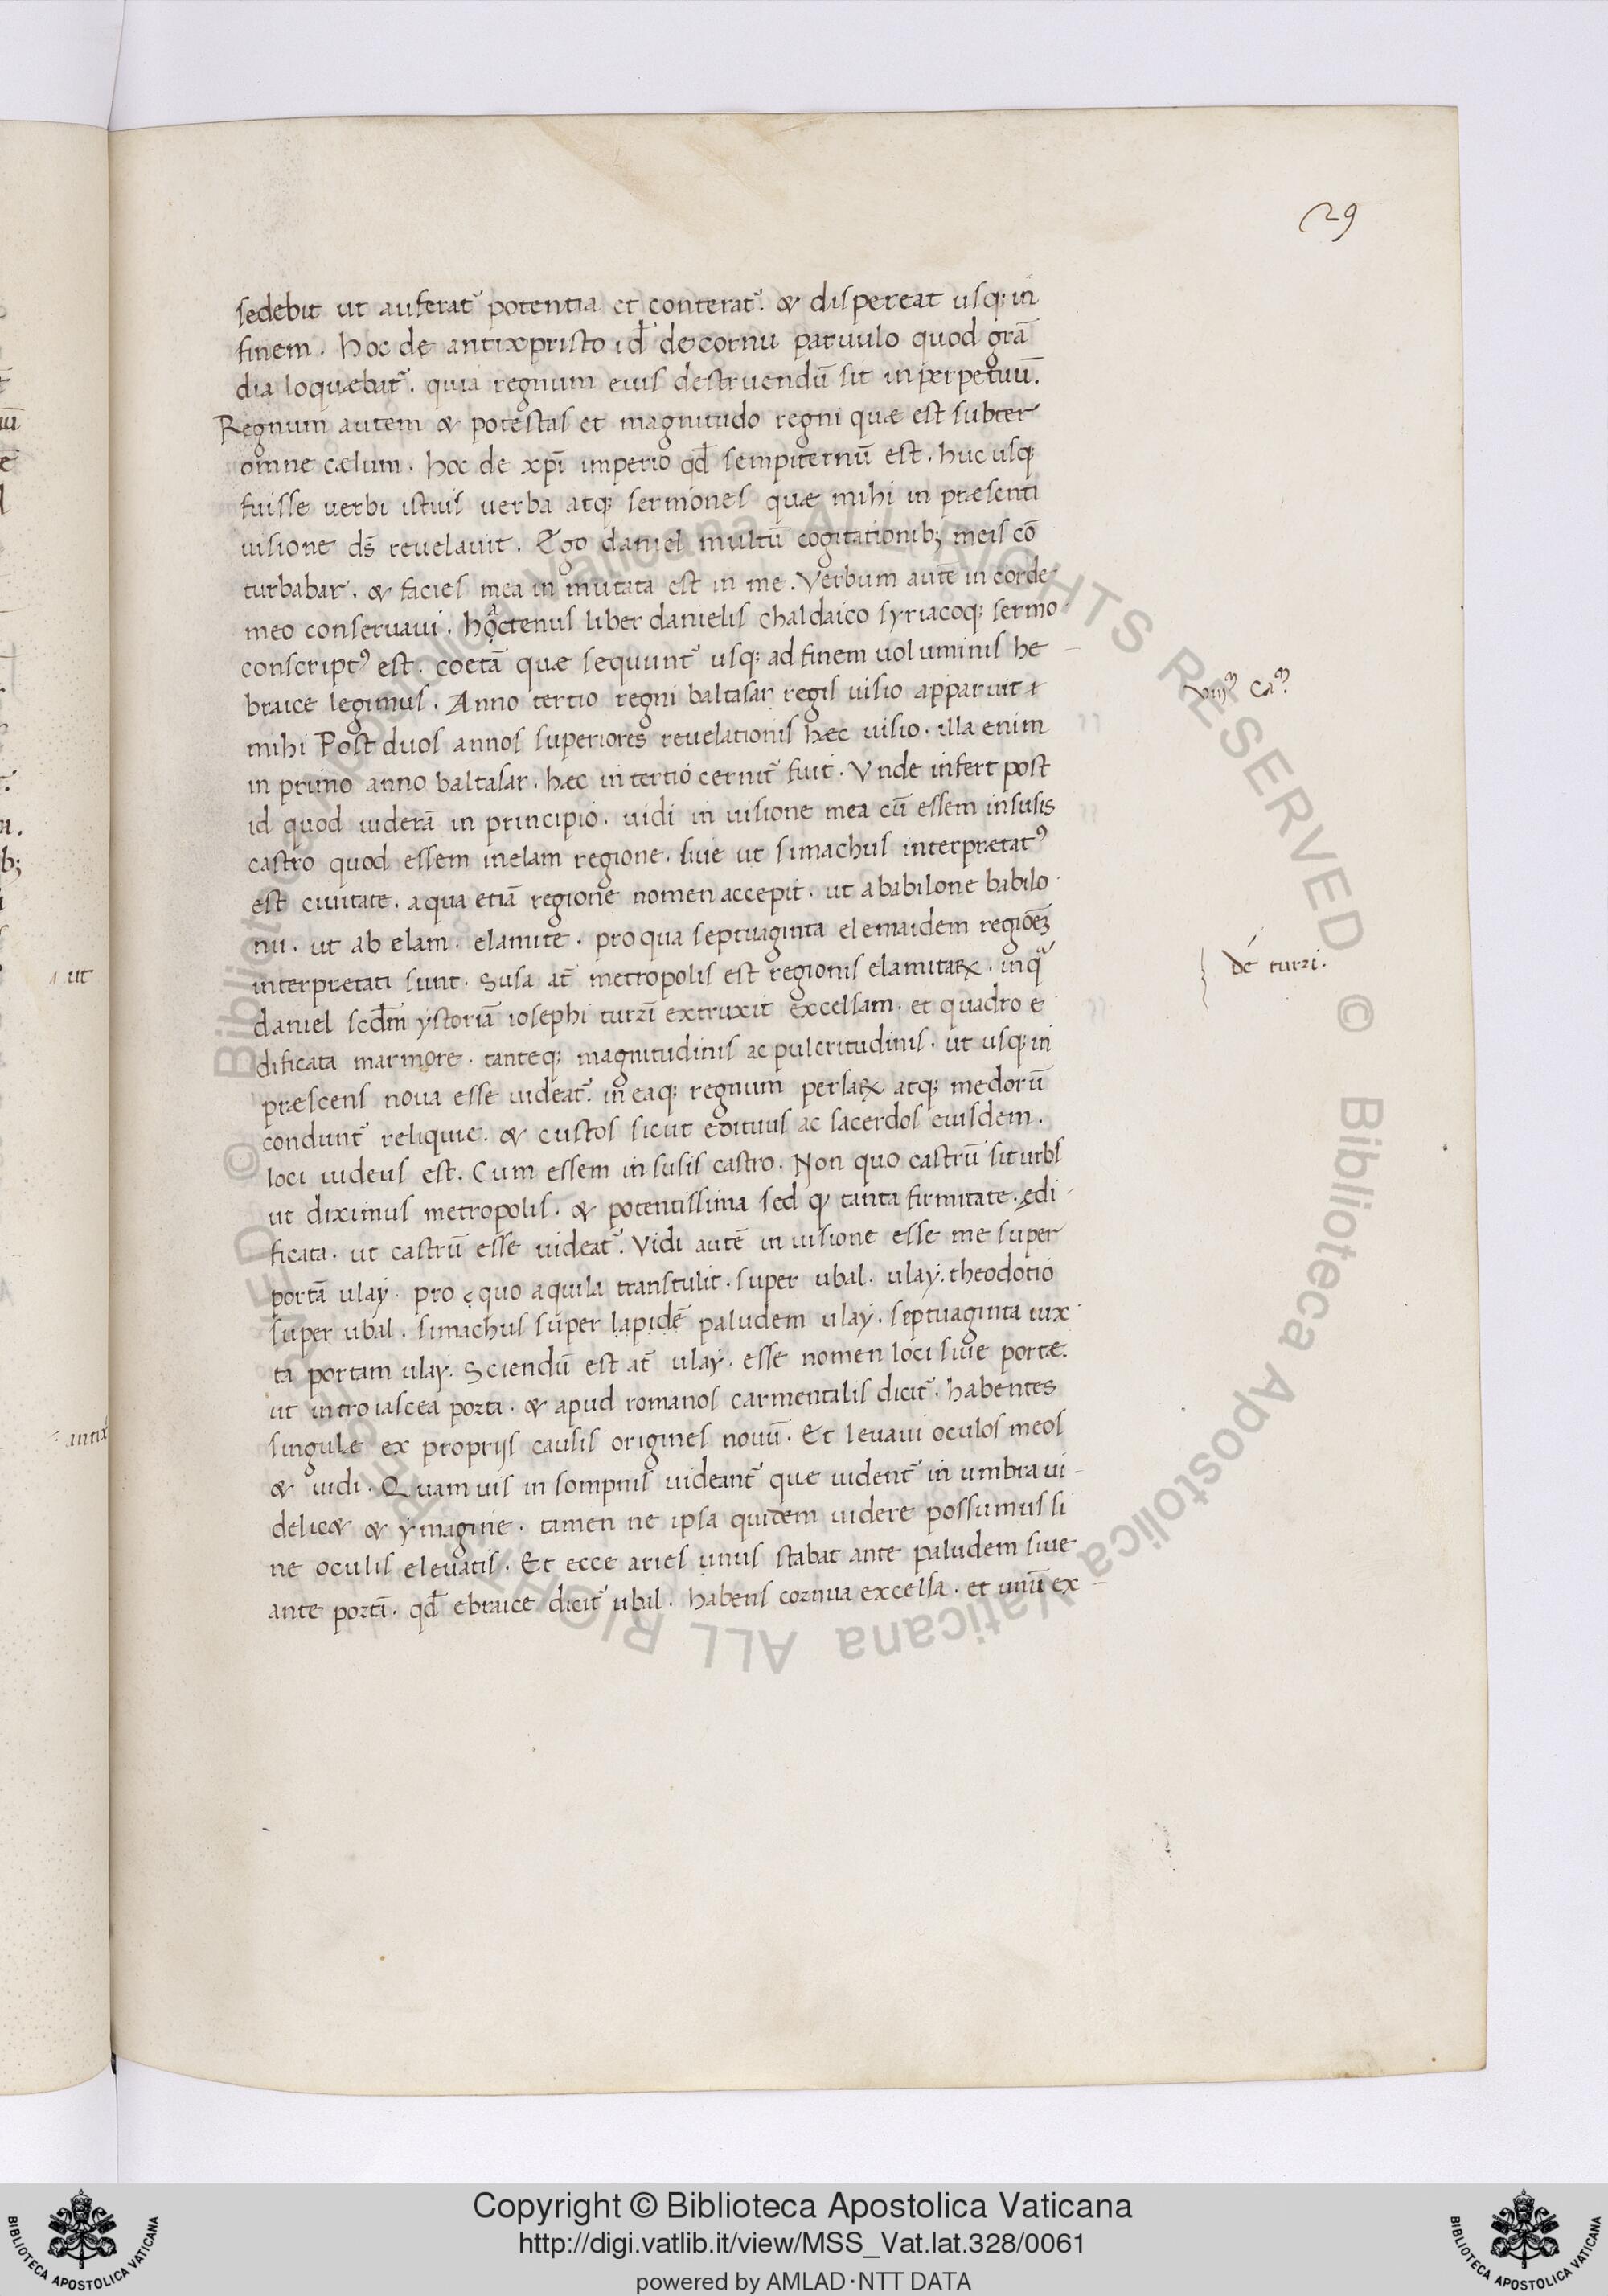 29
sedebit ut auferat᷑ potentia et conterat᷑. & dispereat usq; in
finem. hoc de antixpristo id̄ de cornu paruulo quod grā
dia loquebat᷑. quia regnum eius destruendū sit in perpetuū.
Regnum autem & potestas et magnitudo regni quæ est subter
omne cælum. hoc de xp̄i imperio qd̄ sempiternū est. huc usq;
fuisse uerbi istius uerba atq; sermones quæ mihi in præsenti
uisione ds̄ reuelauit. Ego daniel multū cogitationib; meis cō
turbabar. & facies mea in mutata est in me. Verbum autē in corde
meo conseruaui. hactenus liber danielis chaldaico syriacoq; sermo
conscriptꝰ est. coetā quæ sequunt᷑ usq; ad finem uoluminis he
braice legimus. Anno tertio regni baltasar regis uisio apparuit
viijᵐ caᵐ
mihi Post duos annos superiores reuelationis hæc uisio. illa enim
in primo anno baltasar. hæc in tertio cernit᷑ fuit. Vnde infert post
id quod uiderā in principio. uidi in uisione mea cū essem in susis
castro quod essem in elam regione. siue ut simachus interpretatꝰ
est ciuitate. a qua etiā regione nomen accepit. ut a babilone babilo
nii. ut ab elam. elamite. pro qua septuaginta elemaidem regioēȝ
interpretati sunt. Susa at̄ metropolis est regionis elamitaꝝ. in qͣ
de turzi.
daniel scd̄m ystoriā iosephi turzī extruxit excelsam. et quadro e
dificata marmore. tanteq; magnitudinis ac pulcritudinis. ut usq; in
præscens noua esse uideat᷑. in eaq; regnum persaꝝ atq; medorū
condunt᷑ reliquie. & custos sicut edituus ac sacerdos eiusdem.
loci iudeus est. Cum essem in susis castro. Non quo castrū sit urbs
ut diximus metropolis. & potentissima sed ꝙ tanta firmitate. ędi
ficata. ut castrū esse uideat᷑. Vidi autē in uisione esse me super
portā ulay. pro quo aquila transtulit. super ubal. ulay. theodotio
super ubal. simachus super lapidē paludem ulay. septuaginta iux
ta portam ulay. Sciendū est at̄ ulay. esse nomen loci siue portæ.
ut in troiascea porta. & apud romanos carmentalis dicit᷑. habentes
singule ex proprijs causis origines nouū. Et leuaui oculos meos
& uidi. Quam uis in sompnis uideant᷑ que uident᷑ in umbra ui
delic& & ymagine. tamen ne ipsa quidem uidere possumus si
ne oculis eleuatis. Et ecce aries unus stabat ante paludem siue
ante portā. qd̄ ebraice dicit᷑ ubal. habens cornua excelsa. et unū ex
ut
antix
Copyright © Biblioteca Apostolica Vaticana
http://digi.vatlib.it/view/MSS_Vat.lat.328/0061
powered by AMLAD·NTT DATA
BIBLIOTECA APOSTOLICA VATICANA
BIBLIOTECA APOSTOLICA VATICANA
© Biblioteca Apostolica Vaticana ALL RIGHTS RESERVED © Biblioteca Apostolica Vaticana ALL RIGHTS RESERVED